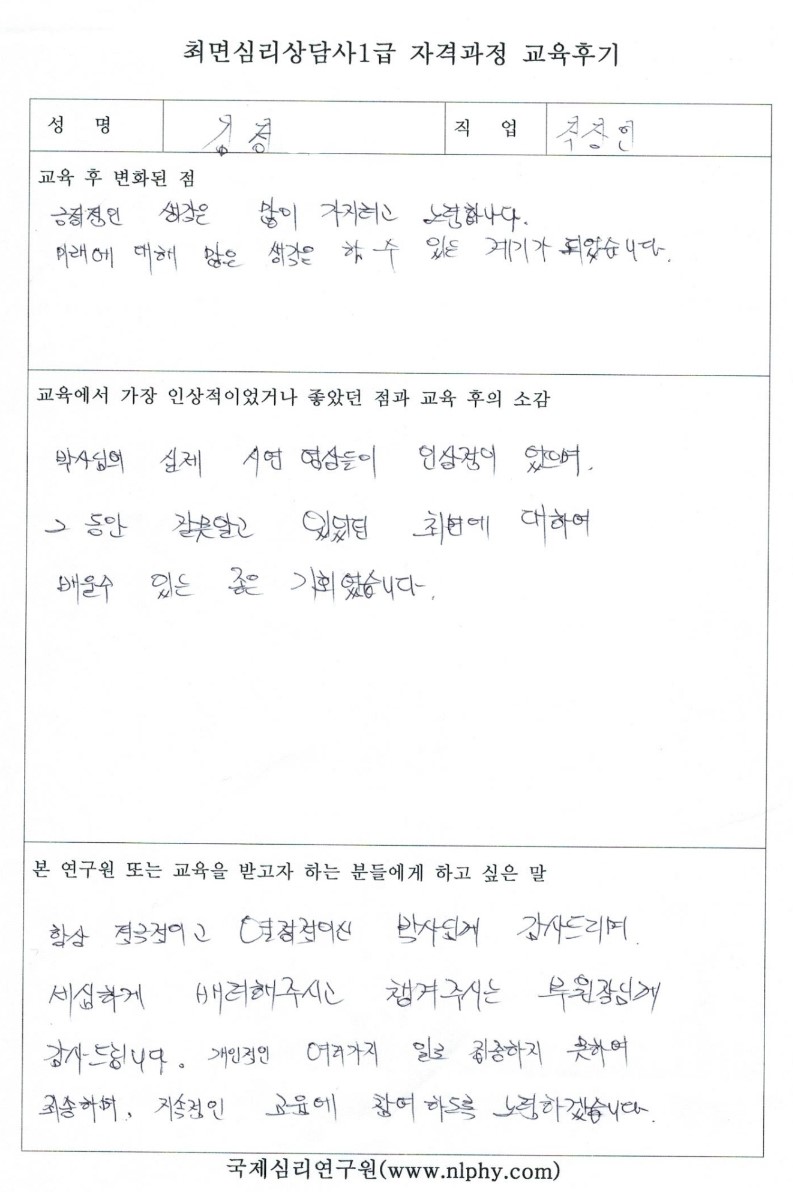 최면심리상담사1급 자격과정 교육후기
성 명 김 정 직 업
교육 후 변화된 점
긍정적인 생각을 많이 가지려고 노력합니다.
미래에 대해 많은 생각을 할 수 있는 계기가 되었습니다.
교육에서 가장 인상적이었거나 좋았던 점과 교육 후의 소감
박사님의 실제 시연 영상들이 인상적이 었으며,
그 동안 잘못알고 있었던 최면에 대하여
배울수 있는 좋은 기회였습니다.
본 연구원 또는 교육을 받고자 하는 분들에게 하고 싶은 말
항상 적극적이고 열정적이신 박사님께 감사드리며
세심하게 배려해주시고 챙겨주시는 부원장님께
감사드립니다. 개인적인 여러가지 일로 집중하지 못하여
죄송하며, 지속적인 교육에 참여하도록 노력하겠습니다.
국제심리연구원(www.nlphy.com)